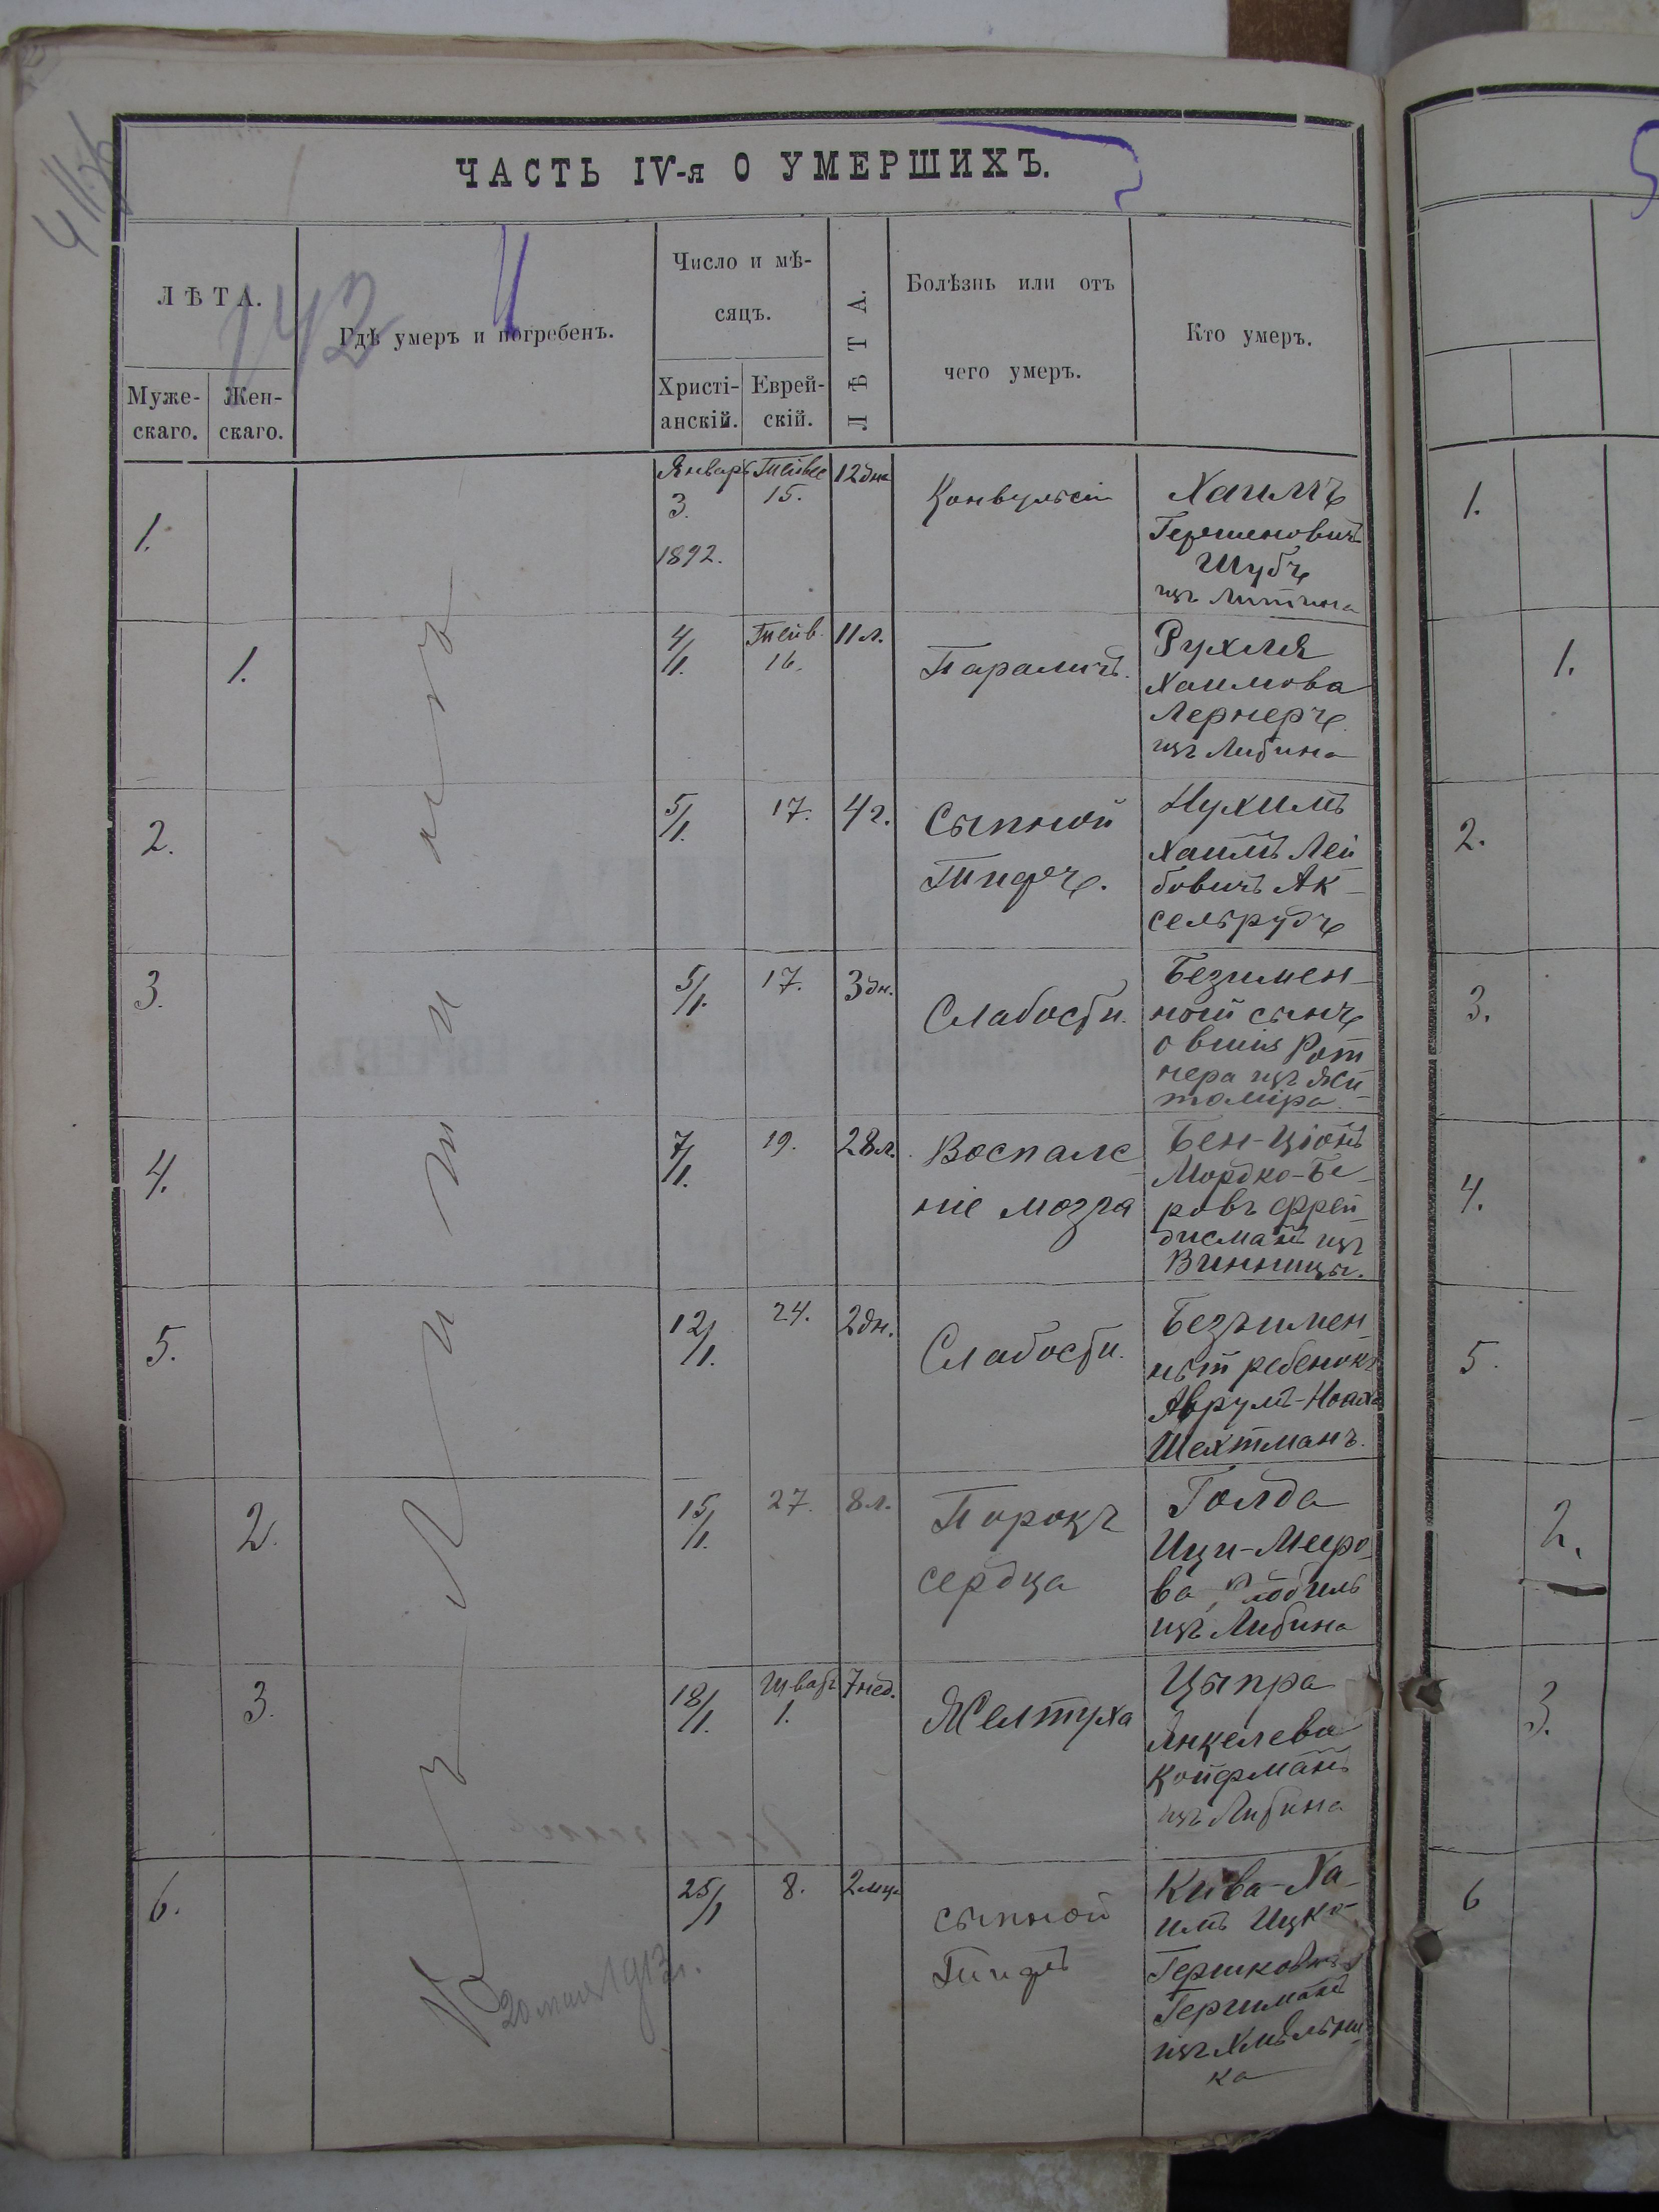 ЧАСТЬ IV-я О УМЕРШИХЪ.
142
ЛѢТА.
Муже-
скаго.
Жен-
скаго.
Гдѣ умеръ и погребенъ.
Число и мѣ-
сяцъ.
Христі-
анскій.
Еврей-
скій.
ЛѢТА.
Болѣзнь или отъ
чего умеръ.
Кто умеръ.
1.
Январь
3.
1892.
Тейвес
15.
12 дне
Конвульсіи
Хаимъ
Гершеновичъ
Шубъ
изъ Литина
1.
1.
4/1.
Тейв.
16.
11 л.
Параличъ.
Рухля
Хаимова
Лернеръ
изъ Литина
1.
2.
5/1.
17.
4 г.
Сыпной
Тифъ.
Нухимъ
Хаимъ Лей
бовичъ Ак-
сельрудъ
2.
3.
5/1.
17.
3 дн.
Слабости.
Безимен-
ной сынъ
Овшія Рот
нера изъ Жи
томіра.
3.
4.
7/1.
19.
28 л.
Воспале
ніе мозга
Бен-Ціонъ
Мордко-Бе-
ровъ Фрей-
дисманъ изъ
Винницы.
4.
5.
12/1.
24.
2 дн.
Слабости.
Безъимен
ный ребенокъ
Аврумъ-Ноаха
Шехтманъ.
5.
2.
15/1.
27.
8 л.
Порокъ
сердца
Голда
Ици-Меиро-
ва
изъ Литина
2.
3.
18/1.
Шватъ
1.
7 нед.
Желтуха
Цыпра
Янкелева
Койфманъ
изъ Литина
3.
6.
25/1
8.
2 мц.
сыпной
Тифъ
Кива-Ха-
имъ Ицко-
Гершковичъ
Гершманъ
изъ Хмѣльни-
ка
6
20 мая 1913 г.